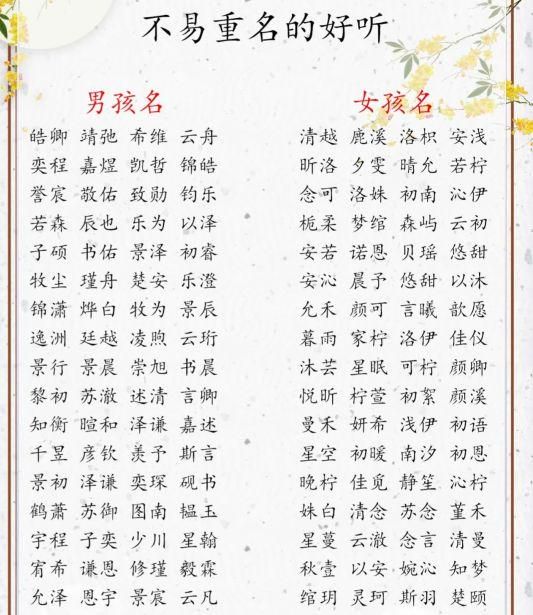 不易重名的好听
男孩名 女孩名
皓卿 靖弛 希维 云舟 清越 鹿溪 洛枳 安浅
奕程 嘉煜 凯哲 锦皓 昕洛 夕雯 晴允 若柠
誉宸 敬佑 致勋 钧乐 念可 洛姝 初南 沁伊
若森 辰也 乐为 以泽 栀柔 梦绾 森屿 云初
子硕 书佑 景泽 初睿 安若 诺恩 贝瑶 悠甜
牧尘 瑾舟 楚安 乐澄 安沁 晨予 悠甜 以沐
锦潇 烨白 牧为 景辰 允禾 颜可 言曦 歆愿
逸洲 廷越 凌煦 云珩 暮雨 家柠 洛伊 佳仪
景行 景晨 崇旭 书晨 沐芸 星眠 可柠 颜卿
黎初 苏澈 述清 言卿 悦昕 柠萱 初絮 颜溪
知衡 暄和 泽谦 嘉述 曼禾 妍希 浅伊 初语
千昱 彦钦 羡予 斯言 星空 初暖 南汐 初恩
景初 泽谦 奕琛 砚书 晚柠 佳觅 静笙 沁柠
鹤萧 苏御 图南 韫玉 姝白 清念 苏念 堇禾
宇程 子奕 少川 星翰 星蔓 云澈 念言 清曼
宥希 谦恩 修瑾 毅霖 秋壹 以安 婉沁 知梦
允泽 恩宇 景宸 云凡 绾玥 灵珂 斯羽 楚颐